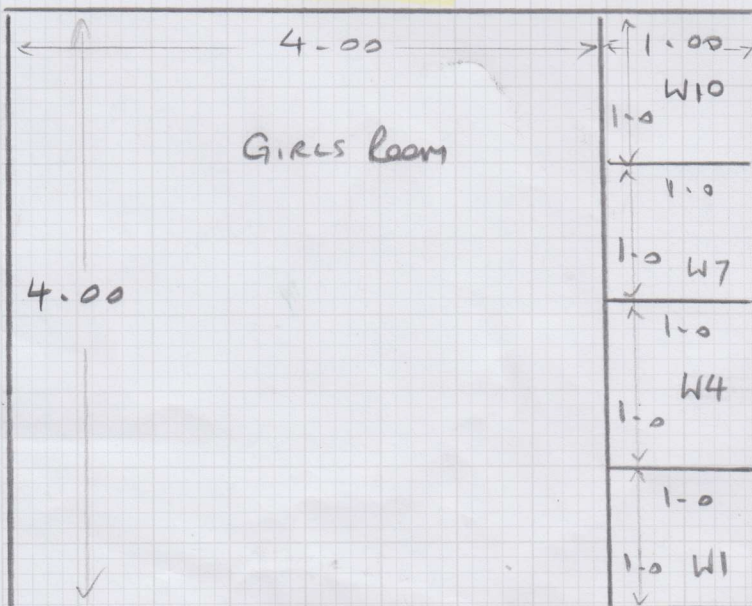 4.00
1.00
W10
1.0
GIRLS Room
1.0
1.0
W7
4.00
1.0
W4
1.0
1.0
1.0 W1